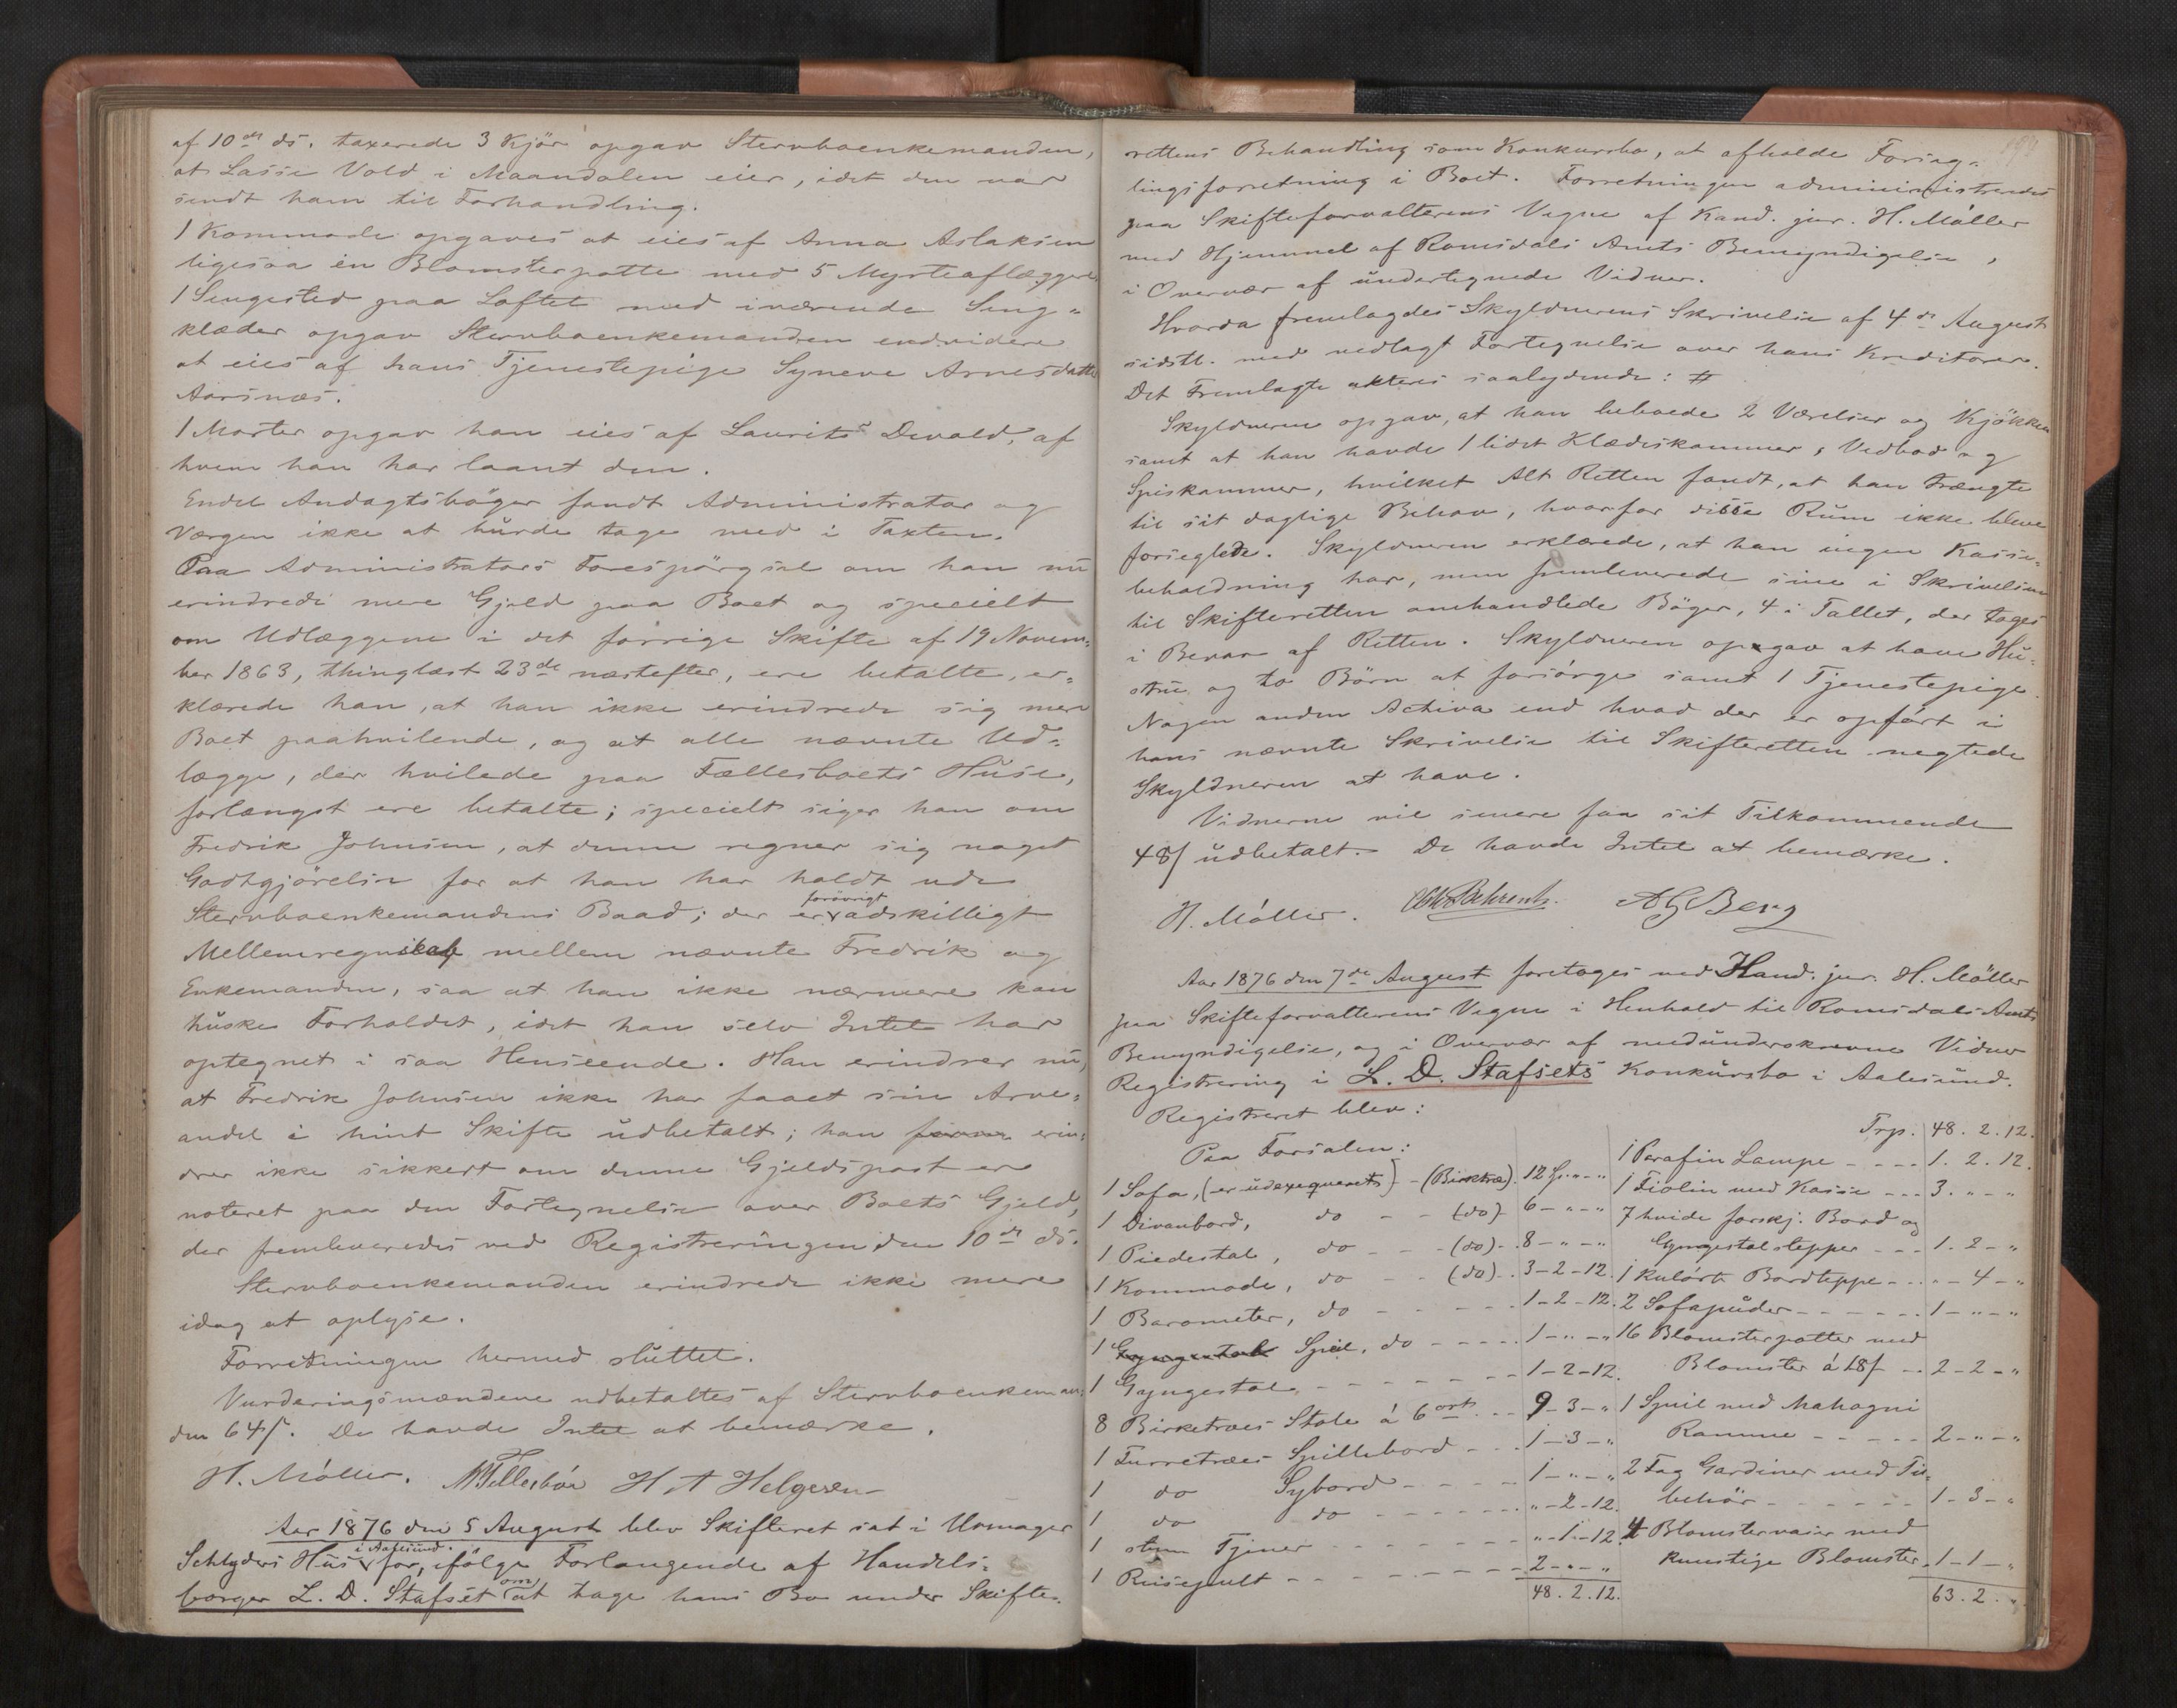 af 10de ds. taxerede 3 Kjør opgav Stervboenkemanden,
at Lasse Vold i Maandalen eier, idet den var
sendt ham til Forhandling.
1 Kommode opgaves at eies af Anna Aslaksen
ligesaa en Blomsterpotte med 5 Myrteaflæggere
1 Sengested paa Loftet med iværende Seng-
klæder opgav Stervboenkemanden endvidere
at eies af hans Tjenestepige Syneve Arnesdatter
Aarsnæs.
1 Morter opgav han eies af Laurits Devold, af
hvem han har laant den.
Endel Andagtsbøger fandt Administrator og
Værgen ikke at burde tage med i Taxten.
Paa Administrators Forespørgsel om han nu
erindrede mere Gjeld paa Boet og specielt
om Udlæggene i det forrige Skifte af 19 Novem-
ber 1863, thinglæst 23de næstefter, ere betalte, er-
klærede han, at han ikke erindrede sig mere
Boet paahvilende, og at alle nævnte Ud-
lægge, der hvilede paa Fællesboets Huse,
forlængst ere betalte; specielt siger han om
Fredrik Johnsen, at denne regner sig noget
Godtgjørelse for at han har holdt ude
Stervboenkemandens Baad; der er forøvrigt adskilligt
Mellemregnskab mellem nævnte Fredrik og
Enkemanden, saa at han ikke nærmere kan
huske Forholdet, idet han selv Intet har
optegnet i saa Henseende. Han erindrer nu,
at Fredrik Johnsen ikke har faaet sin Arve-
andel i hint Skifte udbetalt; han erin-
drer ikke sikkert om denne Gjeldspost er
noteret paa den Fortegnelse over Boets Gjeld,
der fremleveredes ved Registreringen den 10de ds.
Stervboenkemanden erindrede ikke mere
idag at oplyse.
Forretningen hermed sluttet.
Vurderingsmændene udbetaltes af Stervboenkeman-
den 64 s. De havde Intet at bemærke.
H. Møller. H A Helgesen
Aar 1876 den 5 August blev Skifteret sat i Urmager
Schlyders Hus i Aalesund for, ifølge Forlangende af Handels-
borger L. D. Stafset om at tage hans Bo under Skifte-
rettens Behandling som Konkursbo, at afholde Forseg-
lingsforretning i Boet. Forretningen administreredes
paa Skifteforvalterens Vegne af Kand. jur. H. Møller
med Hjemmel af Romsdals Amts Bemyndigelse,
i Overvær af undertegnede Vidner.
Hvorda fremlagdes Skyldnerens Skrivelse af 4de August
sidstl. med vedlagt Fortegnelse over hans Kreditorer.
Det Fremlagte akteres saalydende: #
Skyldneren opgav, at han beboede 2 Værelser og Kjøkken
samt at han havde 1 lidet Klædeskammer, Vedbod og
Spiskammer, hvilket Alt Retten fandt, at han trængte
til sit daglige Behov, hvorfor disse Rum ikke bleve
forseglede. Skyldneren erklærede, at han ingen Kasse-
beholdning har, men fremleverede sine i Skrivelsen
til Skifteretten omhandlede Bøger, 4 i Tallet, der toges
i Bevar af Retten. Skyldneren opgav at have Hu-
stru og to Børn at forsørge samt 1 Tjenestepige.
Nogen anden Activa end hvad der er opført i
hans nævnte Skrivelse til Skifteretten negtede
Skyldneren at have.
Vidnerne vil senere faa sit Tilkommende
48 s udbetalt. De havde Intet at bemærke.
H. Møller. Behrentz. A G Berg
Aar 1876 den 7de August foretoges ved Kand. jur. H. Møller
paa Skifteforvalterens Vegne i Henhold til Romsdals Amts
Bemyndigelse, og i Overvær af medunderskrevne Vidner
Registrering i L. D. Stafsets Konkursbo i Aalesund.
Registreret blev:
Paa Forsalen:
1 Sofa, (er udexequeret) - (Birketræ). 12 Sp. - " - "
1 Divanbord, do - - (do) 6 - " - "
1 Piedestal, do - - - (do) - 8 - " - "
1 Kommode, do - - (do) - 3 - 2 - 12.
1 Barometer, do - - - - 1 - 2 - 12.
1 Gyngestol Speil, do - - - - 1 - " - "
1 Gyngestol - - - - - - 1 - 2 - 12.
8 Birketræes Stole á 6 ort - - 9 - 3 - "
1 Furretræes Spillebord - - - 1 - 3 - "
1 do Sybord - - - - 1 - " - "
1 do do - - - - - " - 2 - 12.
1 stum Tjener - - - - - - " - 1 - 12.
1 Reisepult - - - - - - - 2 - " - "
48. 2. 12.
Trp. 48. 2. 12.
1 Parafin Lampe - - - - 1. 2. 12.
1 Fiolin med Kasse - - - 3. " - "
7 hvide forskj. Bord og
Gyngestolstepper - - - 1. 2 - "
1 kulørt Bordteppe - - - " - 4 - "
2 Sofapuder - - - - - - 1 - " - "
16 Blomsterpotter med
Blomster á 18 s - - 2 - 2 - "
1 Speil med Mahogni
Ramme - - - - - 2 - " - "
2 Fag Gardiner med Til-
behør - - - - - - - 1 - 3 - "
4 Blomstervaser med
kunstige Blomster - 1 - 1 - "
63. 2. "